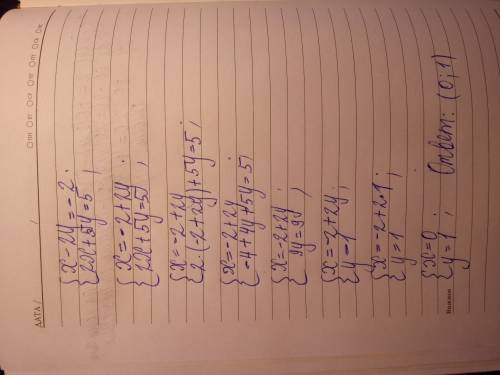 ДАТА/
Пн Вт Ср Чт Пт Сб Вс
{x-2y=-2;
{2x+5y=5;
{x=-2+2y;
{2x+5y=5;
{x=-2+2y
{2·(-2+2y)+5y=5;
{x=-2+2y
{-4+4y+5y=5;
{x=-2+2y;
{9y=9;
{x=-2+2y;
{y=1
{x=-2+2·1;
{y=1
{x=0
{y=1; Ответ: (0; 1)
Важно